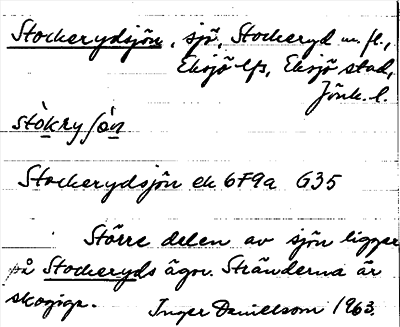 Stockerydsjön, sjö, Stockeryd m. fl.,
Eksjö lfs, Eksjö stad,
Jönk. l.
stòkryſö́n
Stockerydsjön ek 6F9a G35
Större delen av sjön ligger
på Stockeryds ägor. Stränderna är
skogiga. Inger Danielsson 1963.